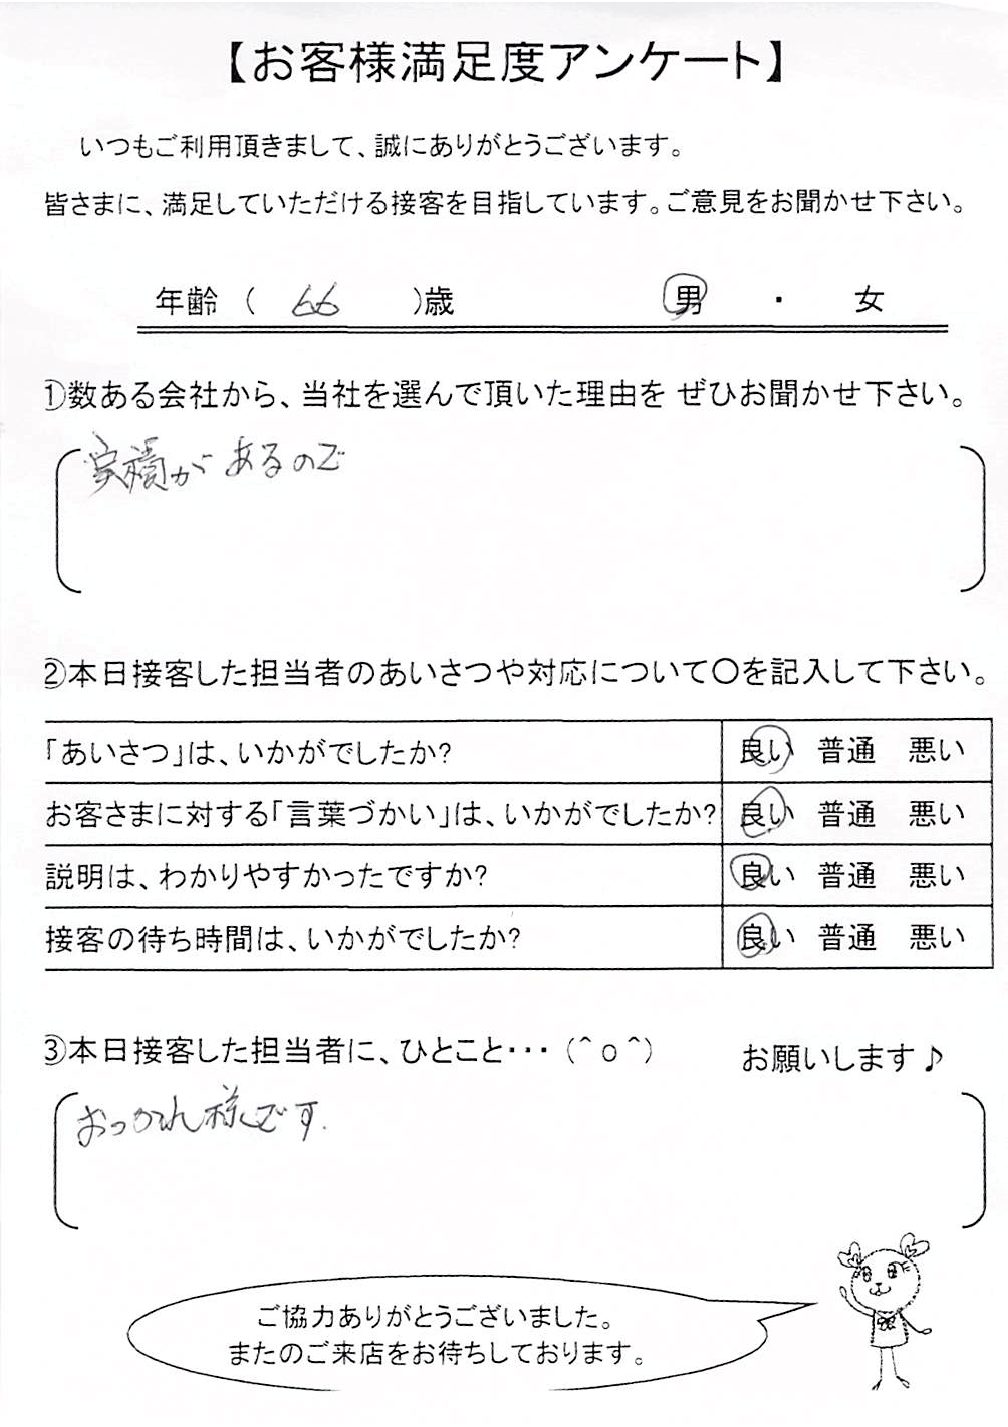 【お客様満足度アンケート】
いつもご利用頂きまして、誠にありがとうございます。
皆さまに、満足していただける接客を目指しています。ご意見をお聞かせ下さい。
年齢 ( 66 )歳 男 ・ 女
①数ある会社から、当社を選んで頂いた理由を ぜひお聞かせ下さい。
実績があるので
②本日接客した担当者のあいさつや対応について〇を記入して下さい。
「あいさつ」は、いかがでしたか? 良い 普通 悪い
お客さまに対する「言葉づかい」は、いかがでしたか? 良い 普通 悪い
説明は、わかりやすかったですか? 良い 普通 悪い
接客の待ち時間は、いかがでしたか? 良い 普通 悪い
③本日接客した担当者に、ひとこと・・・ (^o^) お願いします♪
おつかれ様です.
ご協力ありがとうございました。
またのご来店をお待ちしております。